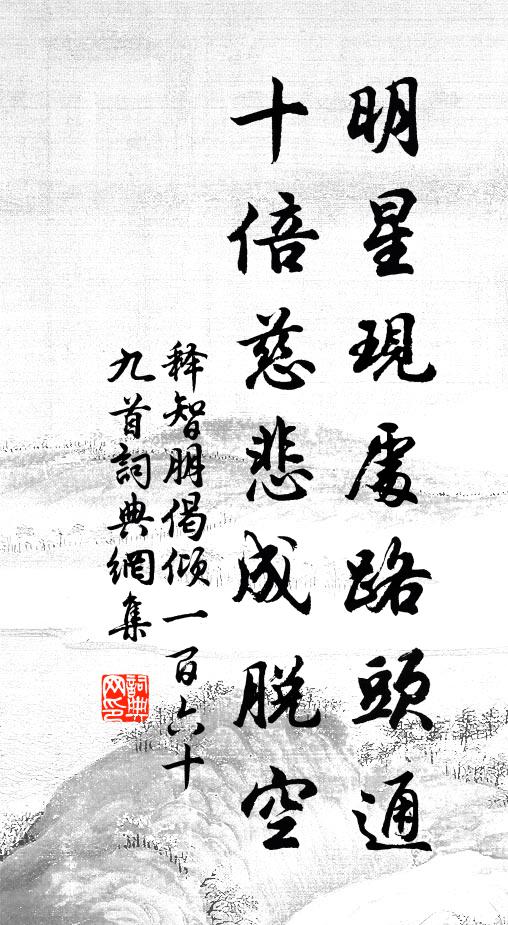 明星現處路頭通
十倍慈悲成脫空
释智朋偈倾一百六十
九首詞典網集
詞典
网印